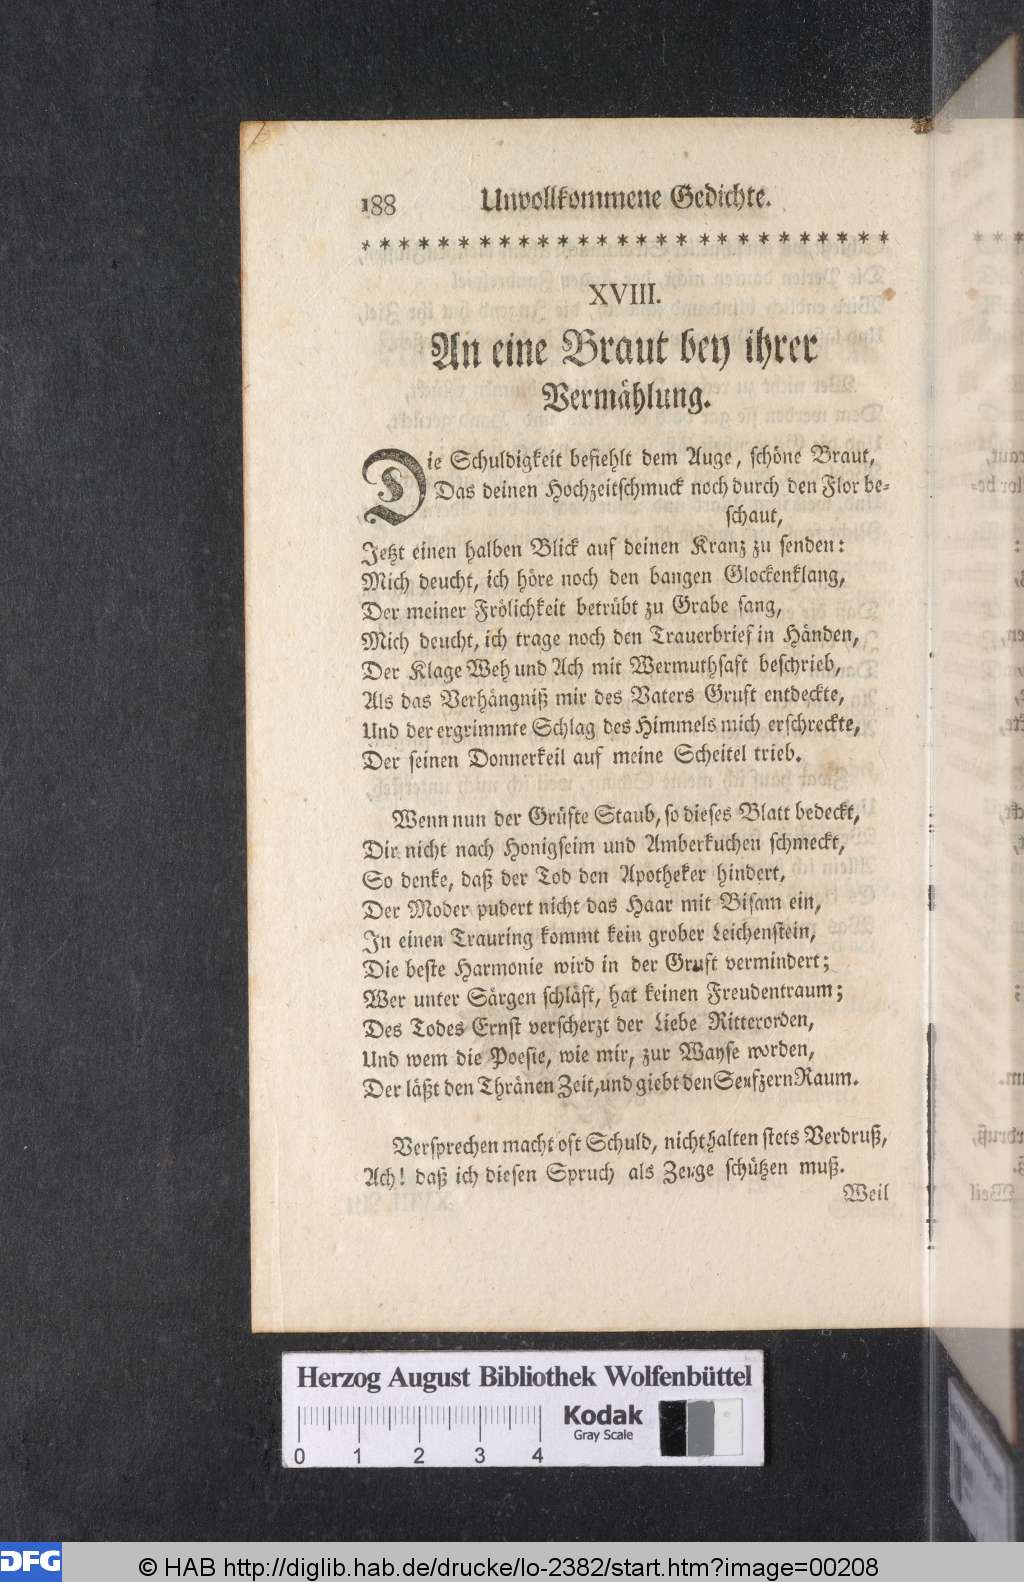 188 Unvollkommene Gedichte.
* * * * * * * * * * * * * * * * * * * * * * * * * * *
XVIII.
An eine Braut bey ihrer
Vermählung.
Die Schuldigkeit befiehlt dem Auge, schöne Braut,
Das deinen Hochzeitschmuck noch durch den Flor be-
schaut,
Jetzt einen halben Blick auf deinen Kranz zu senden:
Mich deucht, ich höre noch den bangen Glockenklang,
Der meiner Frölichkeit betrübt zu Grabe sang,
Mich deucht, ich trage noch den Trauerbrief in Händen,
Der Klage Weh und Ach mit Wermuthsaft beschrieb,
Als das Verhängniß mir des Vaters Gruft entdeckte,
Und der ergrimmte Schlag des Himmels mich erschreckte,
Der seinen Donnerkeil auf meine Scheitel trieb.
Wenn nun der Grüfte Staub, so dieses Blatt bedeckt,
Dir nicht nach Honigseim und Amberkuchen schmeckt,
So denke, daß der Tod den Apotheker hindert,
Der Moder pudert nicht das Haar mit Bisam ein,
In einen Trauring kommt kein grober Leichenstein,
Die beste Harmonie wird in der Gruft vermindert;
Wer unter Särgen schläft, hat keinen Freudentraum;
Des Todes Ernst verscherzt der Liebe Ritterorden,
Und wem die Poesie, wie mir, zur Wayse worden,
Der läßt den Thränen Zeit, und giebt den Seufzern Raum.
Versprechen macht oft Schuld, nicht halten stets Verdruß,
Ach! daß ich diesen Spruch als Zeuge schützen muß.
Weil
Herzog August Bibliothek Wolfenbüttel
Kodak
Gray Scale
0 1 2 3 4
DFG
© HAB http://diglib.hab.de/drucke/lo-2382/start.htm?image=00208